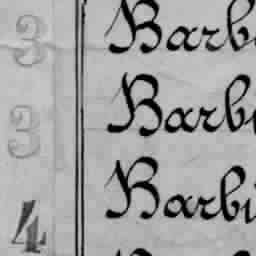 3 Barb
3 Barb
4 Barbi